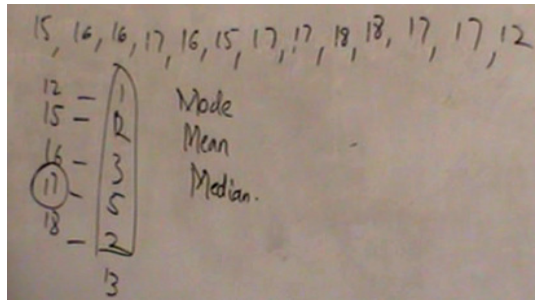 15, 16, 16, 17, 16, 15, 17, 17, 18, 18, 17, 17, 12
12 - 1
15 - 2
16 - 3
17 - 5
18 - 2
13
Mode
Mean
Median.